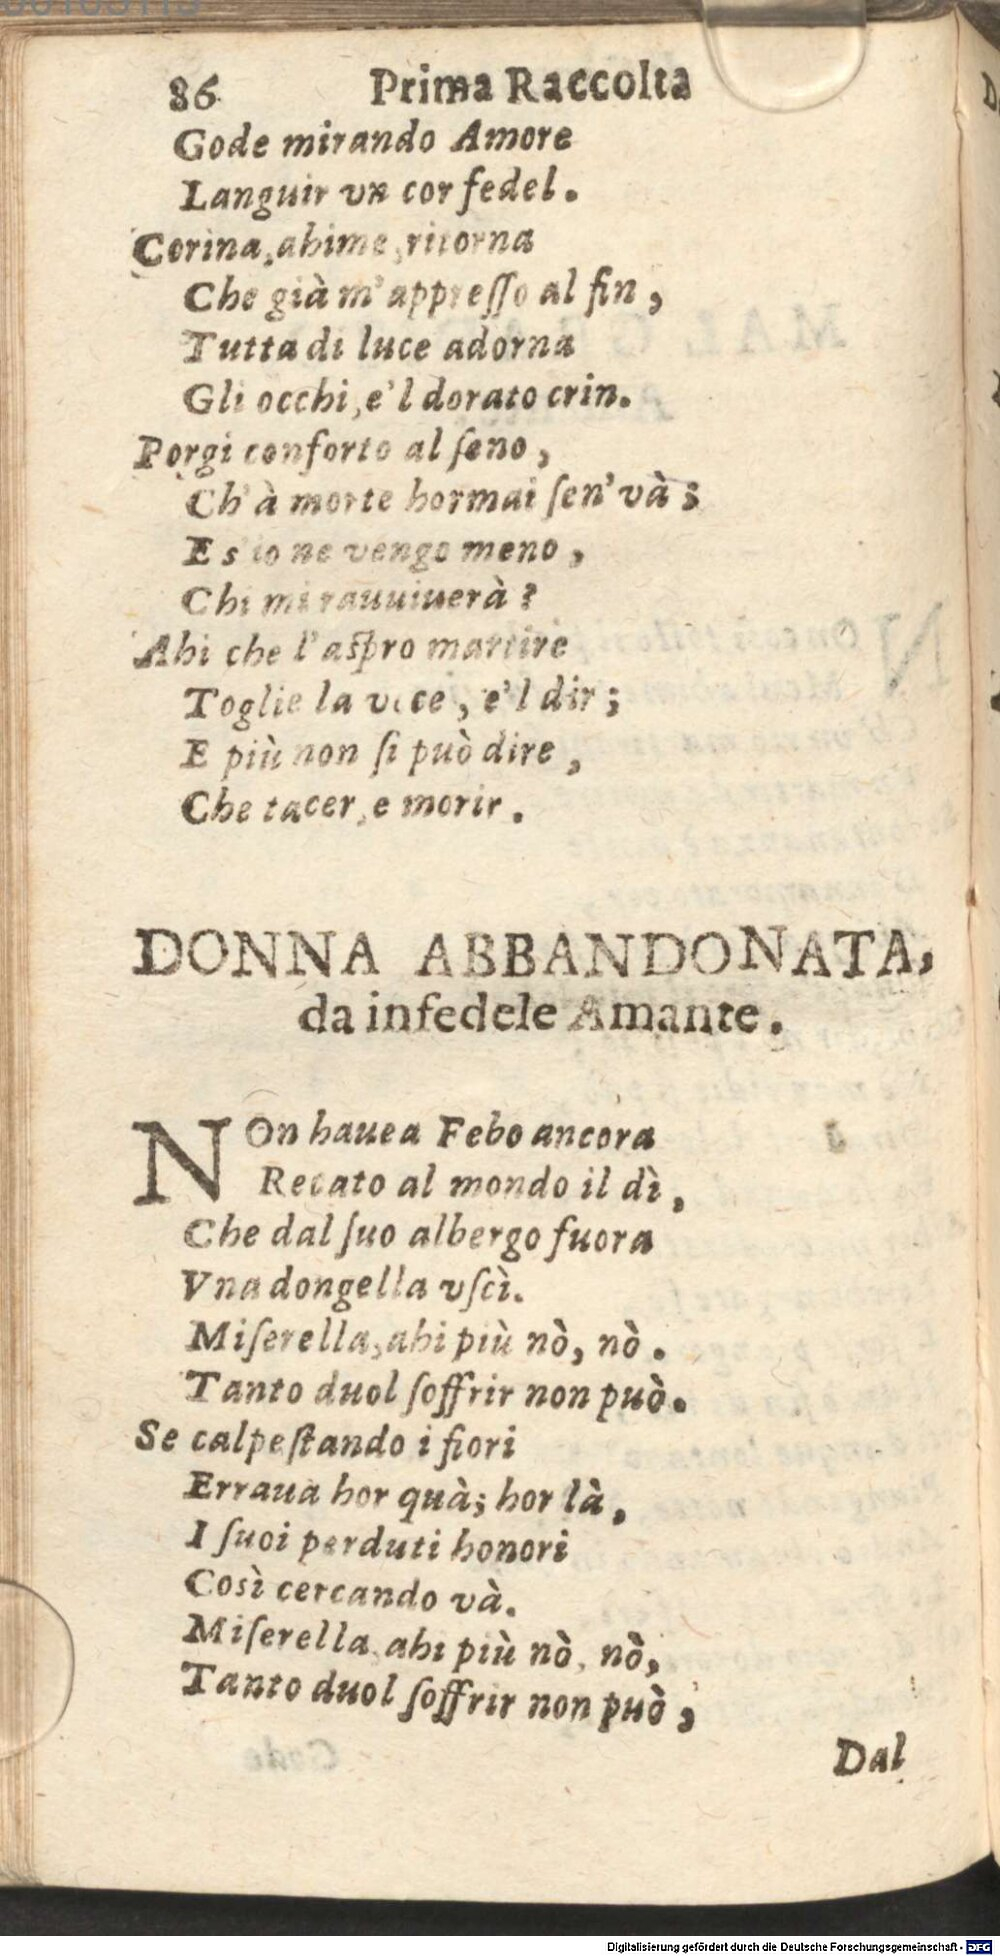 86 Prima Raccolta
Gode mirando Amore
Languir vn cor fedel.
Corina, ahime, ritorna
Che già m'appreſſo al fin,
Tutta di luce adorna
Gli occhi, e'l dorato crin.
Porgi conforto al ſeno,
Ch'à morte hormai ſen' và;
E s'io ne vengo meno,
Chi mi rauuiuerà?
Ahi che l'aſpro martire
Toglie la voce, e'l dir;
E più non ſi può dire,
Che tacer, e morir.
DONNA ABBANDONATA,
da infedele Amante.
NOn hauea Febo ancora
Recato al mondo il dì,
Che dal ſuo albergo fuora
Vna dongella vſcì.
Miſerella, ahi più nò, nò.
Tanto duol ſoffrir non può.
Se calpeſtando i fiori
Erraua hor quà; hor là,
I ſuoi perduti honori
Così cercando và.
Miſerella, ahi più nò, nò,
Tanto duol ſoffrir non può,
Dal
Digitalisierung gefördert durch die Deutsche Forschungsgemeinschaft - DFG